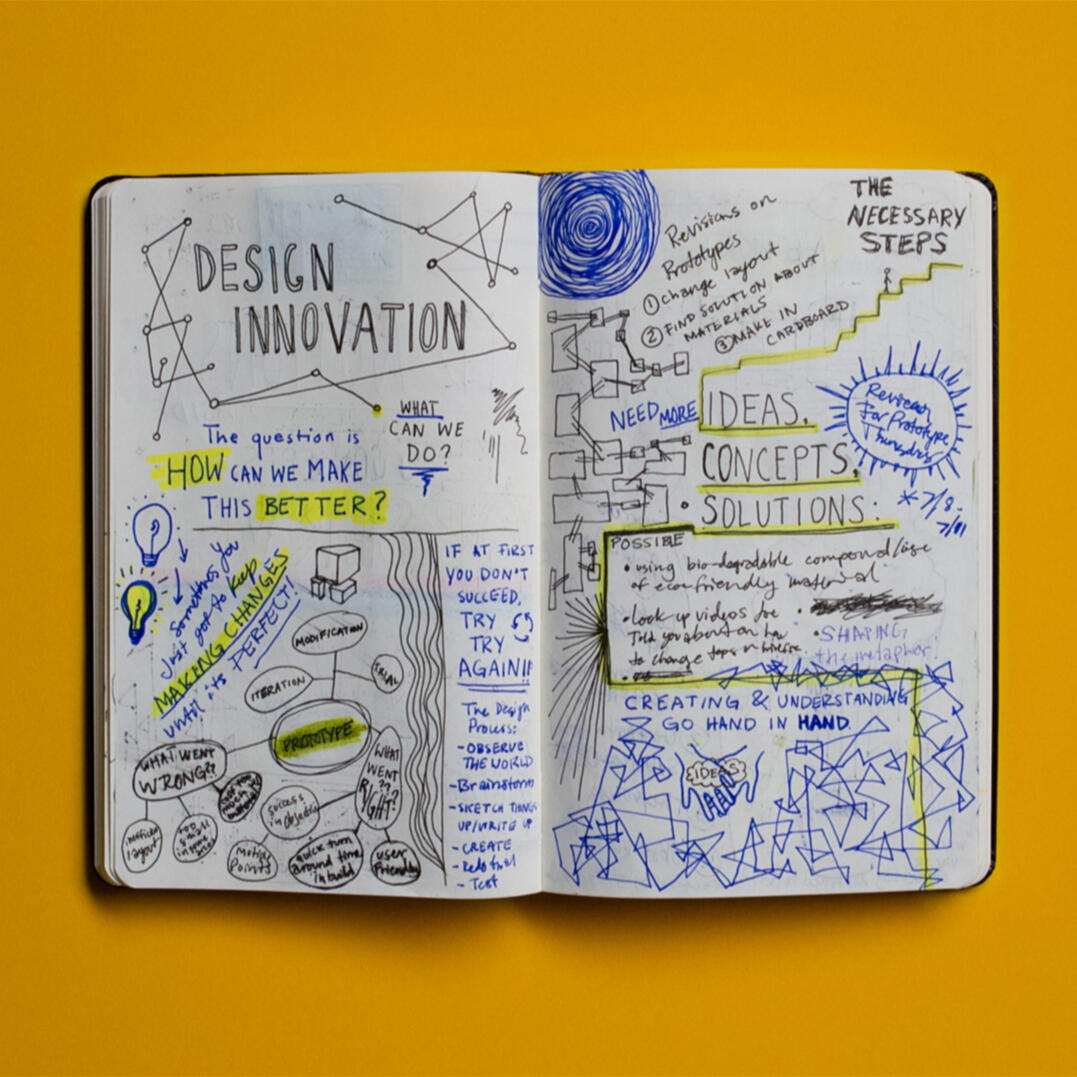 DESIGN
INNOVATION
WHAT
CAN WE
DO?
The question is
HOW CAN WE MAKE
THIS BETTER?
Sometimes you
Just got to keep
MAKING CHANGES
until its PERFECT!
MODIFICATION
ITERATION
TRIAL
PROTOTYPE
WHAT WENT
WRONG??
WHAT
WENT
??
RIGHT?
layout
success
in objective
Motion
Points
quick turn
around time
in build
user
Friendly
IF AT FIRST
YOU DON'T
SUCCEED,
TRY
TRY
AGAIN!!
The Design
Process:
- OBSERVE
THE WORLD
- Brainstorm
- SKETCH THINGS
UP/WRITE UP
- CREATE
- Test
Revisions on
Prototypes
① change layout
② FIND SOLUTION ABOUT
MATERIALS
③ MAKE IN
CARDBOARD
THE
NECESSARY
STEPS
NEED MORE
IDEAS,
CONCEPTS,
• SOLUTIONS:
For Prototype
* 7/8-
7/11
POSSIBLE
• using bio-degradable compound/use
of eco-friendly material
• Look up videos
to change
• SHAPING
the metaphor!
CREATING & UNDERSTANDING
GO HAND IN HAND
IDEAS